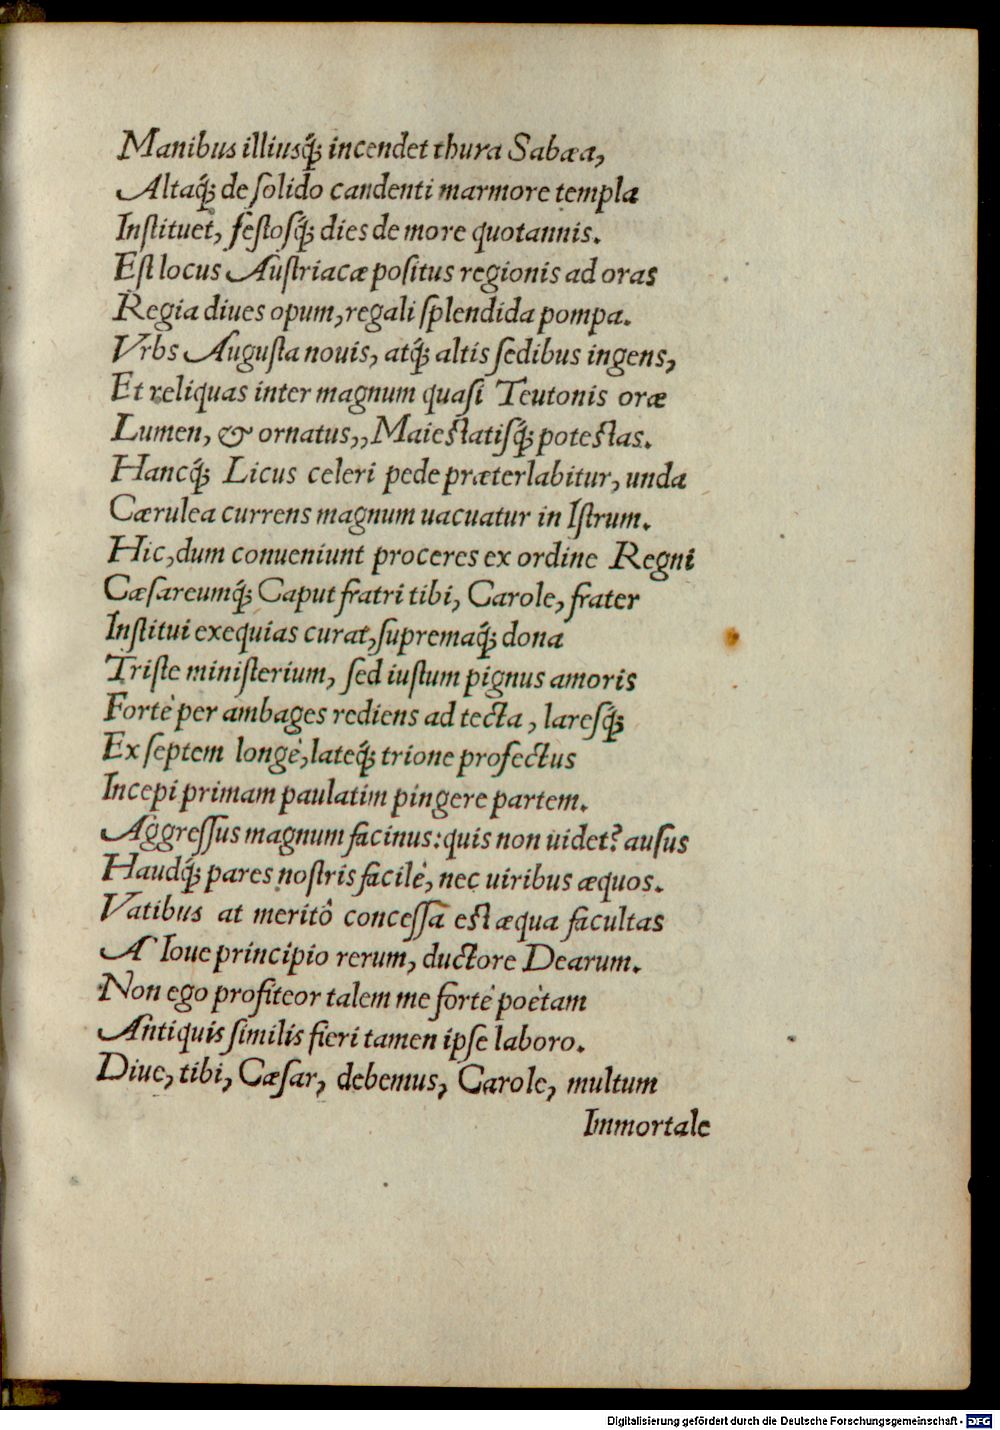 Manibus illiusq́; incendet thura Sabæa,
Altaq́; de ſolido candenti marmore templa
Inſtituet, feſtoſq́; dies de more quotannis.
Eſt locus Auſtriacæ poſitus regionis ad oras
Regia diues opum, regali ſplendida pompa.
Vrbs Auguſta nouis, atq́; altis ſedibus ingens,
Et reliquas inter magnum quaſi Teutonis oræ
Lumen, & ornatus,, Maieſtatiſq́; poteſtas.
Hancq́; Licus celeri pede præterlabitur, unda
Cærulea currens magnum uacuatur in Iſtrum.
Hic, dum conueniunt proceres ex ordine Regni
Cæſareumq́; Caput fratri tibi, Carole, frater
Inſtitui exequias curat, ſupremaq́; dona
Triſte miniſterium, ſed iuſtum pignus amoris
Fortè per ambages rediens ad tecta, lareſq́;
Ex ſeptem longè, lateq́; trione profectus
Incepi primam paulatim pingere partem.
Aggreſſus magnum facinus: quis non uidet? auſus
Haudq́; pares noſtris facilè, nec uiribus æquos.
Vatibus at meritô conceſſa eſt æqua facultas
A Ioue principio rerum, ductore Dearum.
Non ego profiteor talem me fortè poètam
Antiquis ſimilis fieri tamen ipſe laboro.
Diue, tibi, Cæſar, debemus, Carole, multum
Immortale
Digitalisierung gefördert durch die Deutsche Forschungsgemeinschaft - DFG